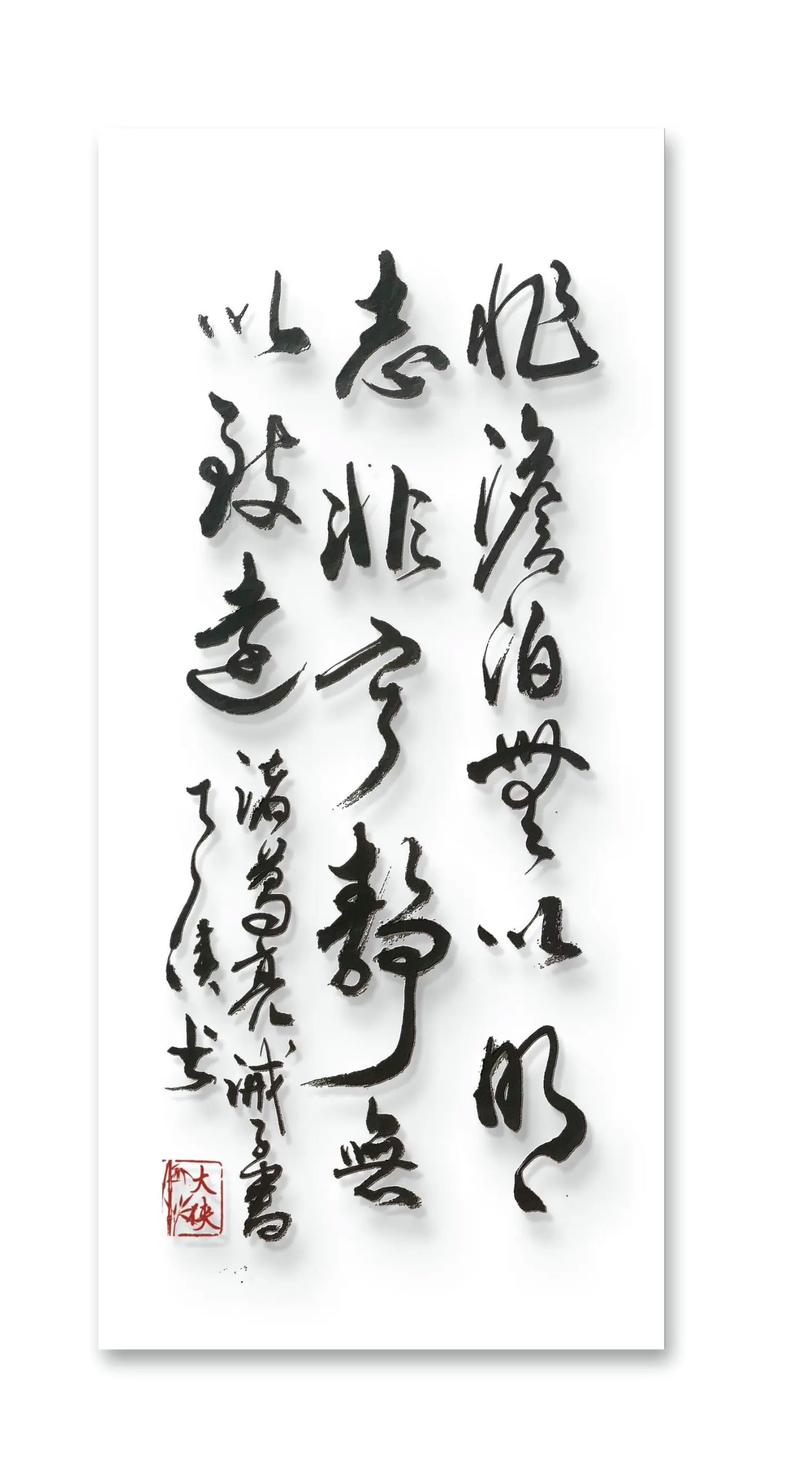 非澹泊無以明
志非寧靜無
以致遠
諸葛亮誡子書
书
大俠